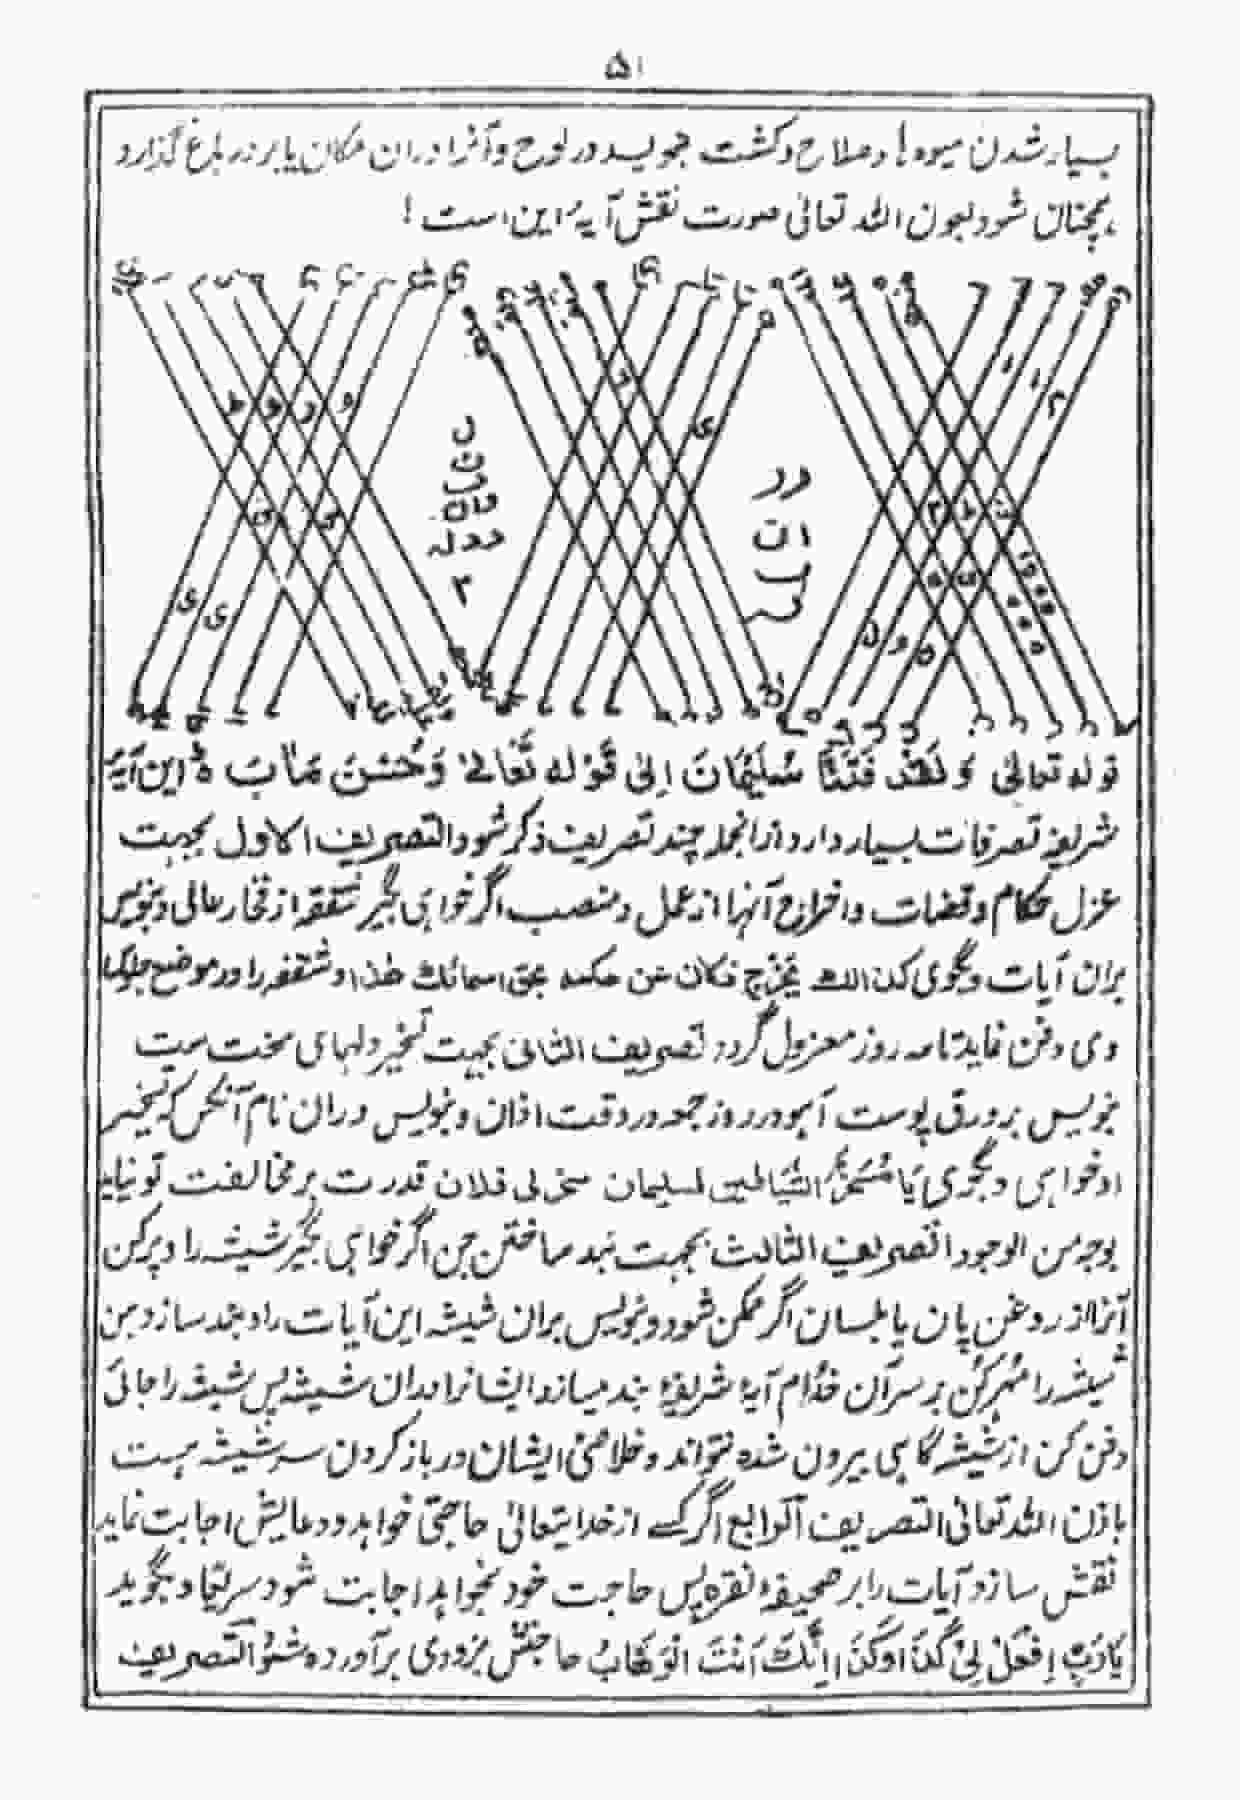 ۵۱
بسیار شدن میوه ها و صلاح و کشت بنویسد در لوح و آنرا در ان مکان یا بر در باغ گذارد
همچنان شود بعون الله تعالی صورت نقش آیهٔ این است !
قوله تعالی وَلَقَدْ فَتَنَّا سُلَیْمَانَ اِلیٰ قَوْلِهِ تَعَالیٰ وَحُسْنَ مَاٰبَ ه این آیهٔ
شریفهٔ تصرفات بسیار دارد از انجمله چند تصریف ذکر شود التصریف الاول بجهت
عزل حکام و قضات و اخراج آنها از عمل و منصب اگر خواهی بگیر شقفه از فخار عالی و بنویس
بران آیات و بگوی کذالک یخرج فلان عن حکمه بحق اسمائک هذا و شقفه را در موضع جلوگاه
وی دفن نماید تا سه روز معزول گردد تصریف الثانی بجهت تسخیر دلهای سخت ست
بنویس بر ورق پوست آهو در روز جمعه در وقت اذان و بنویس دران نام آنکس که تسخیر
او خواهی و بگوی یَا مُسَخِّرُ الشَّیَاطین لسلیمان سخر لی فلان قدرت بر مخالفت تو نیابد
بوجه من الوجود التصریف الثالث بجهت بند ساختن جن اگر خواهی بگیر شیشه را و پر کن
آنرا از روغن پان یا بلسان اگر ممکن شود و بنویس بران شیشه این آیات را و بند سازد من
شیشه را مُهر کُن بر سرآن خدّام آیهٔ شریفهٔ بند میسازد ایشانرا دران شیشه پس شیشه را جائی
دفن کن از شیشه گاهی بیرون شده نتواند و خلاصیٔ ایشان در باز کردن سر شیشه هست
باذن الله تعالیٰ التصریف الرابع اگر کسے از خدایتعالیٰ حاجتی خواهد و دعایش اجابت نماید
نقش سازد آیات را بر صحیفهٔ نقره پس حاجت خود بخواهد اجابت شود سریعًا و بگوید
یَارَبِّ اِفْعَلْ لِیْ کَذَا وَکَذَا اِنَّکَ اَنْتَ الْوَهَّابُ حاجتش بزودی برآورده شود التصریف